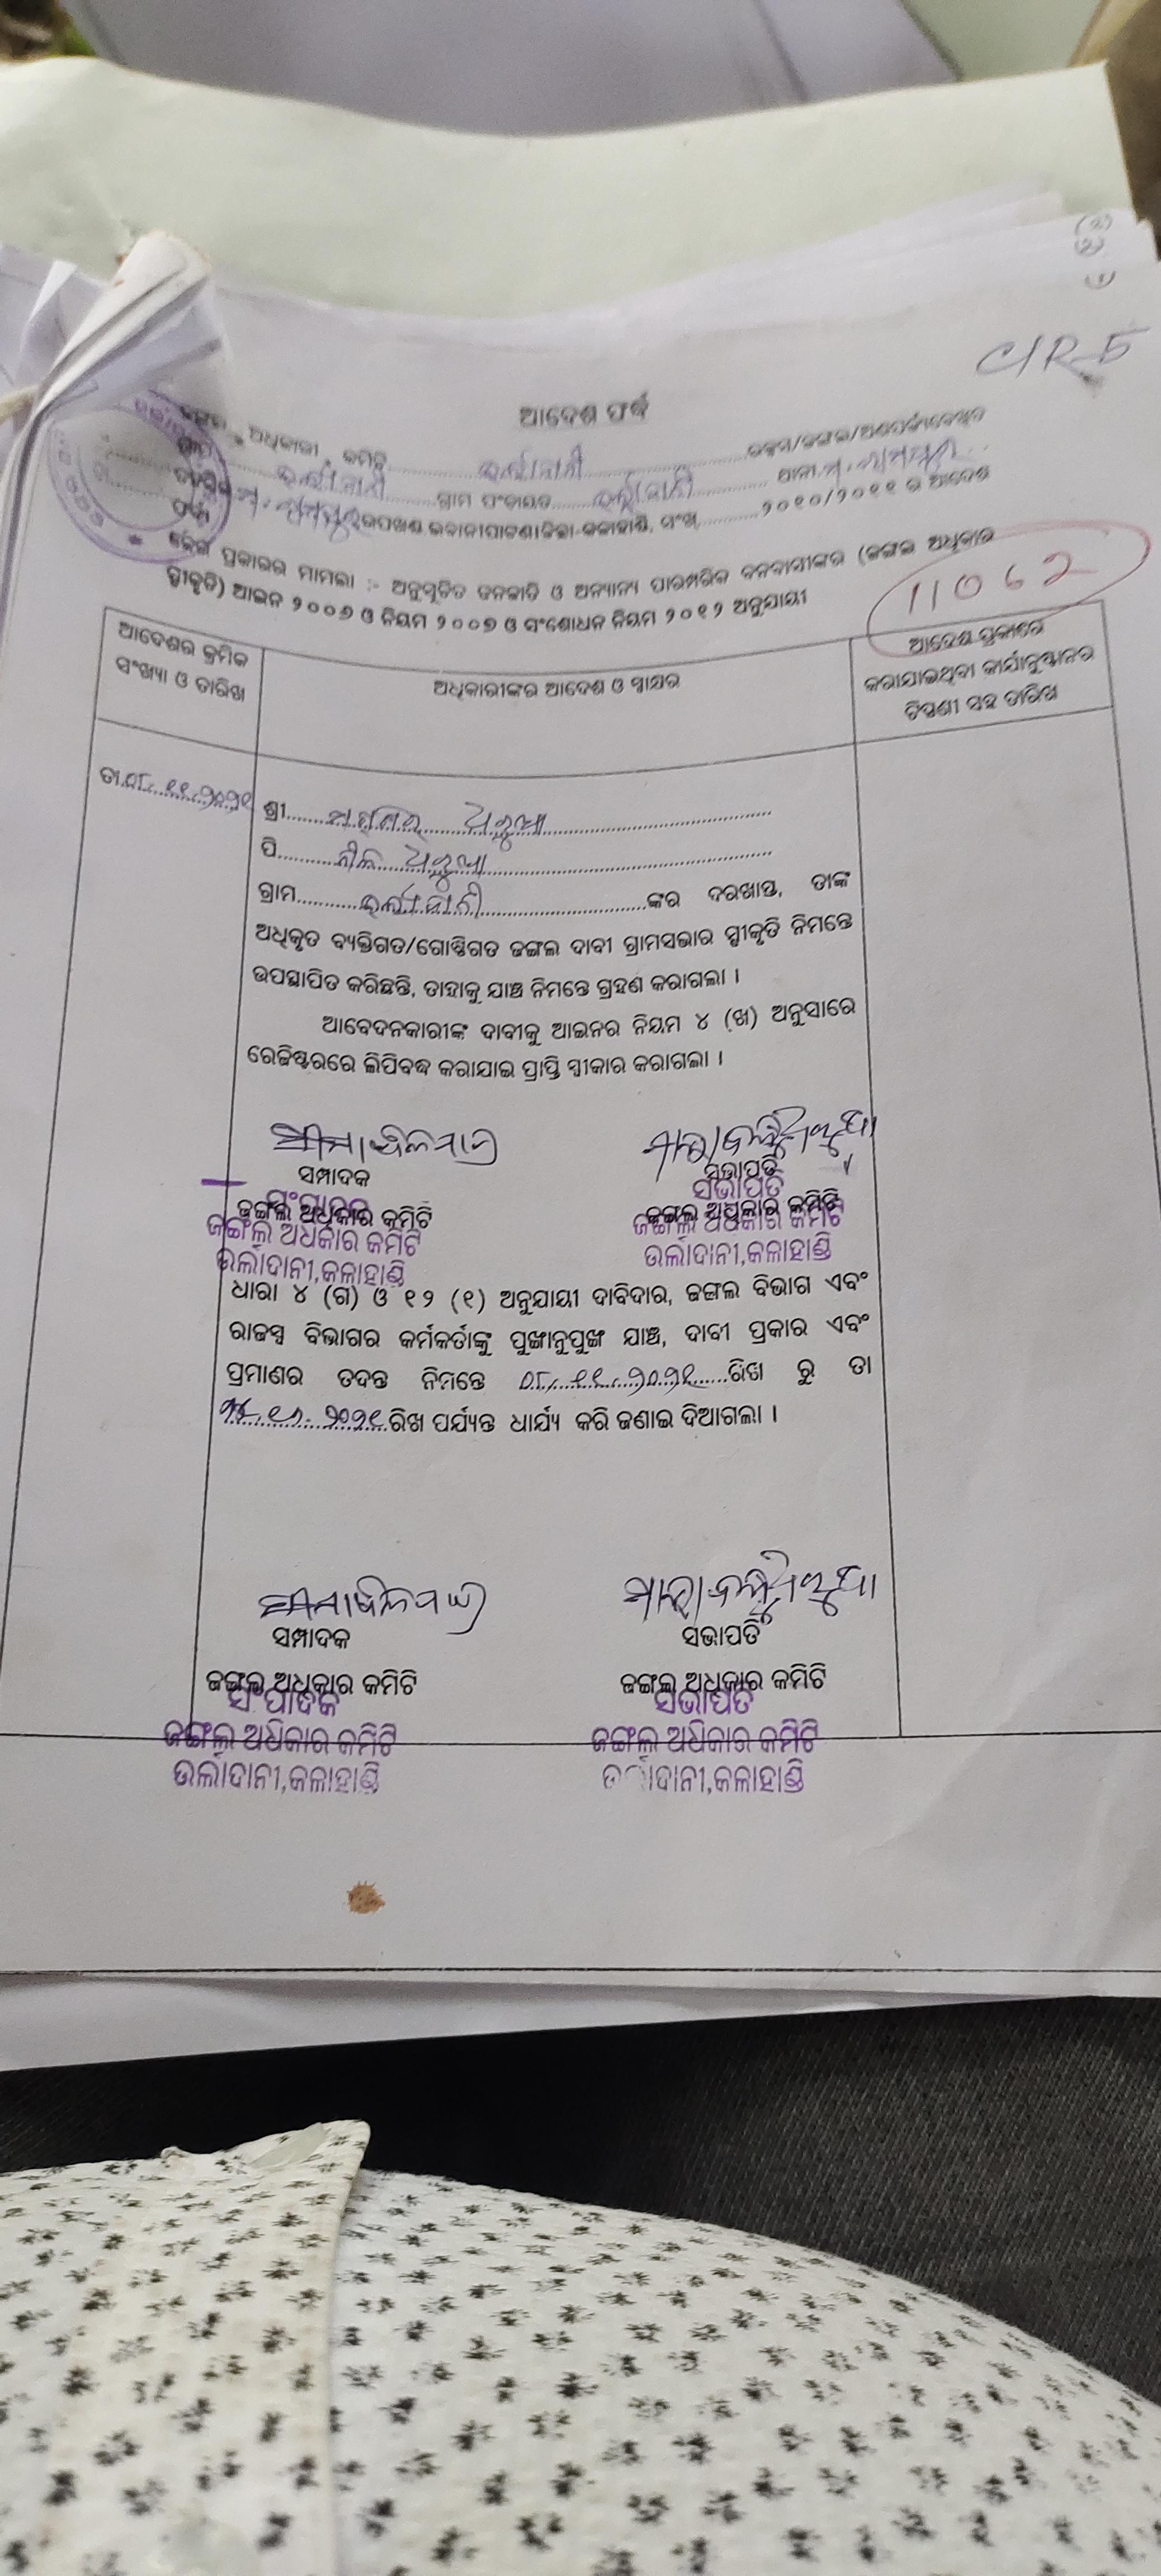 C/R-5
ଆଦେଶ ଫର୍ଦ୍ଦ
ଜଙ୍ଗଲ ଅଧିକାରୀ କମିଟି ଉର୍ଲାଦାନୀ ଉକ୍ତସ/ଜଙ୍ଗଲ/
ଗ୍ରାମ ଉର୍ଲାଦାନୀ ଗ୍ରାମ ପଂଚାୟତ ଉର୍ଲାଦାନୀ ଥାନା ମ. ରାମପୁର
ମ. ରାମପୁର ଉପଖଣ୍ଡ ଭବାନୀପାଟଣା ଜିଲ୍ଲା-କଳାହାଣ୍ଡି, ସଂଖ୍ୟା ୨୦୧୦/୨୦୧୧ ର ଆଦେଶ
ଫର୍ଦ୍ଦ
କେଉଁ ପ୍ରକାରର ମାମଲା :- ଅନୁସୂଚିତ ଜନଜାତି ଓ ଅନ୍ୟାନ୍ୟ ପାରମ୍ପରିକ ବନବାସୀଙ୍କର (ଜଙ୍ଗଲ ଅଧିକାର
ସ୍ୱୀକୃତି) ଆଇନ ୨୦୦୬ ଓ ନିୟମ ୨୦୦୭ ଓ ସଂଶୋଧନ ନିୟମ ୨୦୧୨ ଅନୁଯାୟୀ
11062
ଆଦେଶର କ୍ରମିକ
ସଂଖ୍ୟା ଓ ତାରିଖ
ଅଧିକାରୀଙ୍କର ଆଦେଶ ଓ ସ୍ୱାକ୍ଷର
ଆଦେଶ ପ୍ରକାରେ
କରାଯାଇଥିବା କାର୍ଯ୍ୟାନୁଷ୍ଠାନର
ଟିପ୍ପଣୀ ସହ ତାରିଖ
ତା.୦୮.୧୧.୨୦୨୧
ଶ୍ରୀ
ପି
ଗ୍ରାମ ଉର୍ଲାଦାନୀ ଙ୍କର ଦରଖାସ୍ତ, ତାଙ୍କ
ଅଧିକୃତ ବ୍ୟକ୍ତିଗତ/ଗୋଷ୍ଠିଗତ ଜଙ୍ଗଲ ଦାବୀ ଗ୍ରାମସଭାର ସ୍ୱୀକୃତି ନିମନ୍ତେ
ଉପସ୍ଥାପିତ କରିଛନ୍ତି, ତାହାକୁ ଯାଞ୍ଚ ନିମନ୍ତେ ଗ୍ରହଣ କରାଗଲା ।
ଆବେଦନକାରୀଙ୍କ ଦାବୀକୁ ଆଇନର ନିୟମ ୪ (ଖ) ଅନୁସାରେ
ରେଜିଷ୍ଟରରେ ଲିପିବଦ୍ଧ କରାଯାଇ ପ୍ରାପ୍ତି ସ୍ୱୀକାର କରାଗଲା ।
ସମ୍ପାଦକ ସଭାପତି
ସଂପାଦକ ସଭାପତି
ଜଙ୍ଗଲ ଅଧିକାର କମିଟି ଜଙ୍ଗଲ ଅଧିକାର କମିଟି
ଜଙ୍ଗଲ ଅଧିକାର କମିଟି ଜଙ୍ଗଲ ଅଧିକାର କମିଟି
ଉର୍ଲାଦାନୀ,କଳାହାଣ୍ଡି ଉର୍ଲାଦାନୀ,କଳାହାଣ୍ଡି
ଧାରା ୪ (ଗ) ଓ ୧୨ (୧) ଅନୁଯାୟୀ ଦାବିଦାର, ଜଙ୍ଗଲ ବିଭାଗ ଏବଂ
ରାଜସ୍ୱ ବିଭାଗର କର୍ମକର୍ତାଙ୍କୁ ପୁଙ୍ଖାନୁପୁଙ୍ଖ ଯାଞ୍ଚ, ଦାବୀ ପ୍ରକାର ଏବଂ
ପ୍ରମାଣର ତଦନ୍ତ ନିମନ୍ତେ ୦୮.୧୧.୨୦୨୧ ରିଖ ରୁ ତା
୨୦୨୧ ରିଖ ପର୍ଯ୍ୟନ୍ତ ଧାର୍ଯ୍ୟ କରି ଜଣାଇ ଦିଆଗଲା ।
ସମ୍ପାଦକ ସଭାପତି
ଜଙ୍ଗଲ ଅଧିକାର କମିଟି ଜଙ୍ଗଲ ଅଧିକାର କମିଟି
ସଂପାଦକ ସଭାପତି
ଜଙ୍ଗଲ ଅଧିକାର କମିଟି ଜଙ୍ଗଲ ଅଧିକାର କମିଟି
ଉର୍ଲାଦାନୀ,କଳାହାଣ୍ଡି ଦାନୀ,କଳାହାଣ୍ଡି